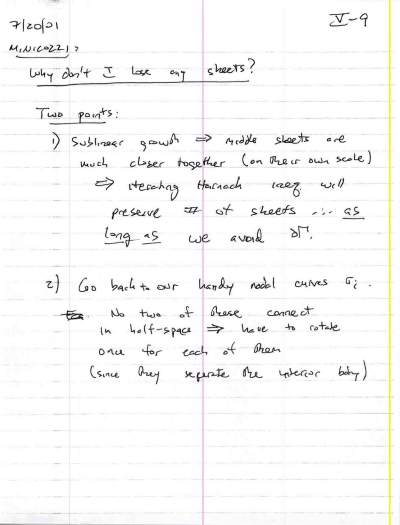 7/20/01
V-9
MINICOZZI:
Why don't I lose any sheets?
Two points:
1) Sublinear growth ⇒ middle sheets are
much closer together (on their own scale)
⇒ iterating Harnack ineq will
preserve # of sheets ... as
long as we avoid ∂Γ.
2) Go back to our handy nodal curves σi.
No two of these connect
in half-space ⇒ have to rotate
once for each of them
(since they separate the interior bdry)